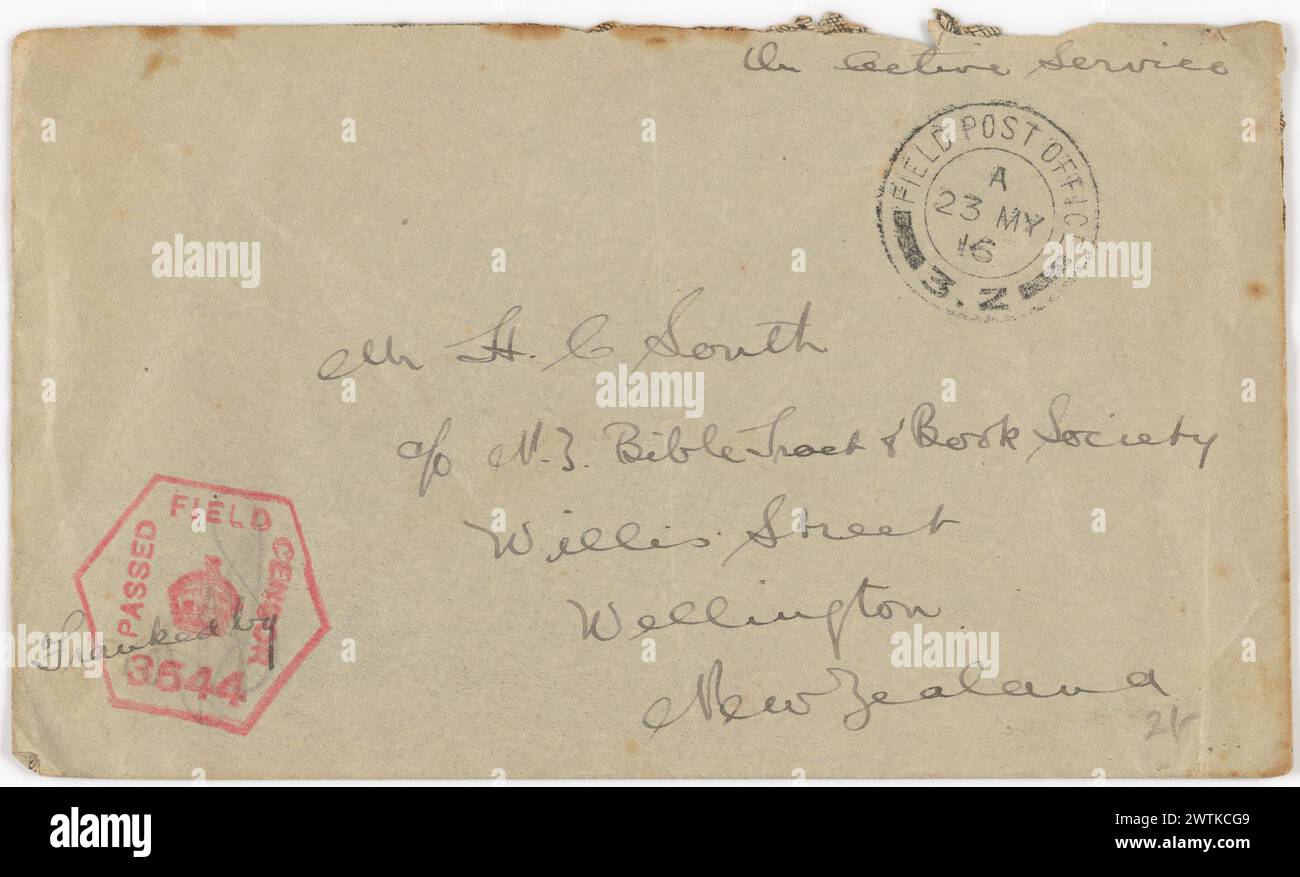 On Active Service
FIELD POST OFFICE
A
23 MY
16
3.Z
Mr H. C South
c/o N.Z. Bible Tract & Book Society
Willis Street
Wellington
New Zealand
PASSED FIELD CENSOR
3544
Franked by
alamy
Image ID: 2WTKCG9
www.alamy.com